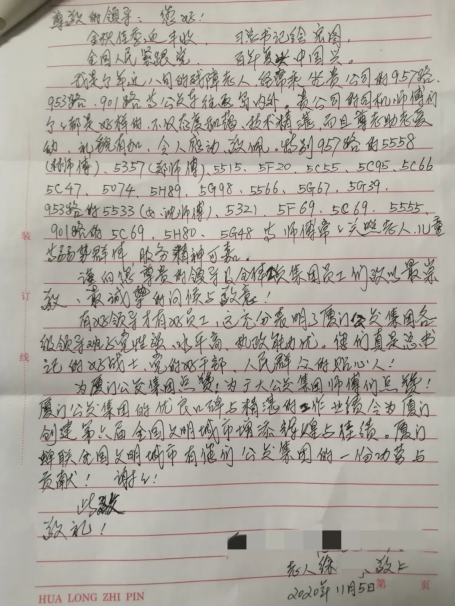 尊敬的领导：您好！
全球任意迎丰收， 习总书记绘宏图，
全国人民紧跟党， 百年复兴中国兴。
我是个年近八旬的残障老人，经常乘坐贵公司的957路、
953路、901路等公交车往返岛内外。贵公司的司机师傅们
个个都是好样的，不仅态度和蔼、技术精湛，而且尊老助老爱
幼、礼貌有加，令人感动、敬佩。特别957路的5558
(郑师傅)、5357(郑师傅)、5515、5F20、5C55、5C95、5C66
5C47、5074、5H89、5G98、5566、5G67、5G39、
953路的5533(女 师傅)、5321、5F69、5C69、5555、
901路的5C69、5H80、5G48等师傅 关照老人、儿童
等弱势群体，服务精神可嘉。
谨向您尊贵的领导及全体公交集团员工们致以最崇
敬、最诚挚的问候与敬意！
有好领导才有好员工，这充分表明了厦门公交集团各
级领导班子党性强、水平高、执政能力优，他们真是总书
记的好战士，党的好干部，人民群众的贴心人！
为厦门公交集团点赞！为广大公交集团师傅们点赞！
厦门公交集团的优良口碑与精湛的工作业绩会为厦门
创建第六届全国文明城市增添辉煌与佳绩。厦门
蝉联全国文明城市有他们公交集团的一份功劳与
贡献！谢谢！
此致
敬礼！
老人 敬上
2020年11月5日
装
订
线
HUA LONG ZHI PIN
第 页